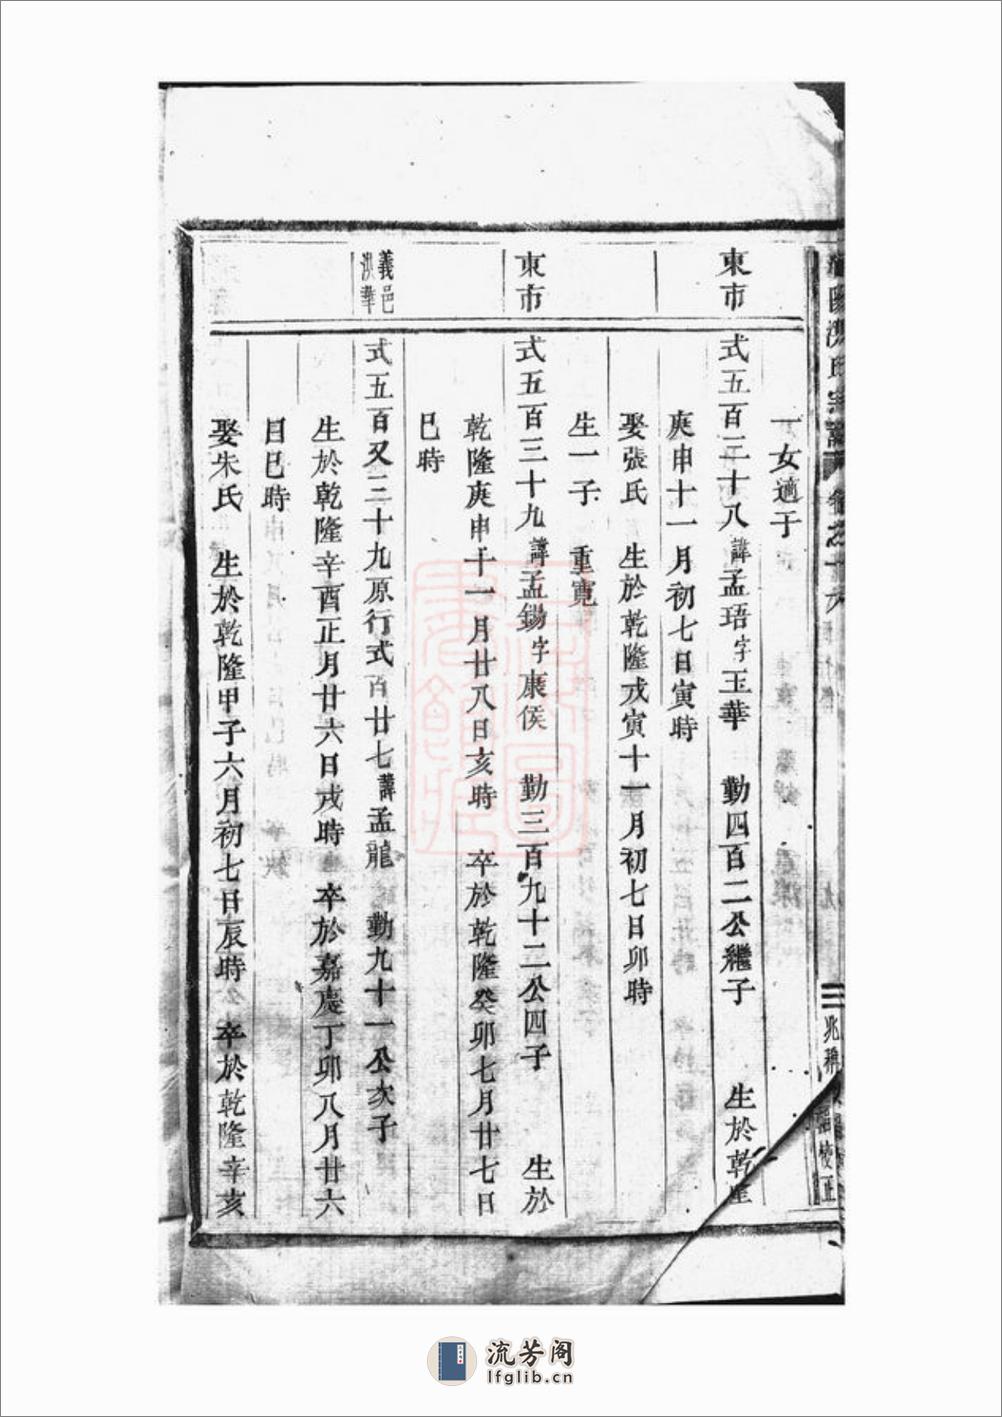 氏宗譜 卷之十六
三 兆 校正
一女適于
東市
式五百三十八諱孟珸字玉華 勤四百二公繼子 生於乾隆
庚申十一月初七日寅時
娶張氏 生於乾隆戊寅十一月初七日卯時
生一子 重寬
東市
式五百三十九諱孟鍚字康侯 勤三百九十二公四子 生於
乾隆庚申十一月廿八日亥時 卒於乾隆癸卯七月廿七日
巳時
義邑
洪
式五百又三十九原行式百廿七諱孟龍 勤九十一公次子
生於乾隆辛酉正月廿六日戌時 卒於嘉慶丁卯八月廿六
日巳時
娶朱氏 生於乾隆甲子六月初七日辰時 卒於乾隆辛亥
流芳阁
lfglib.cn